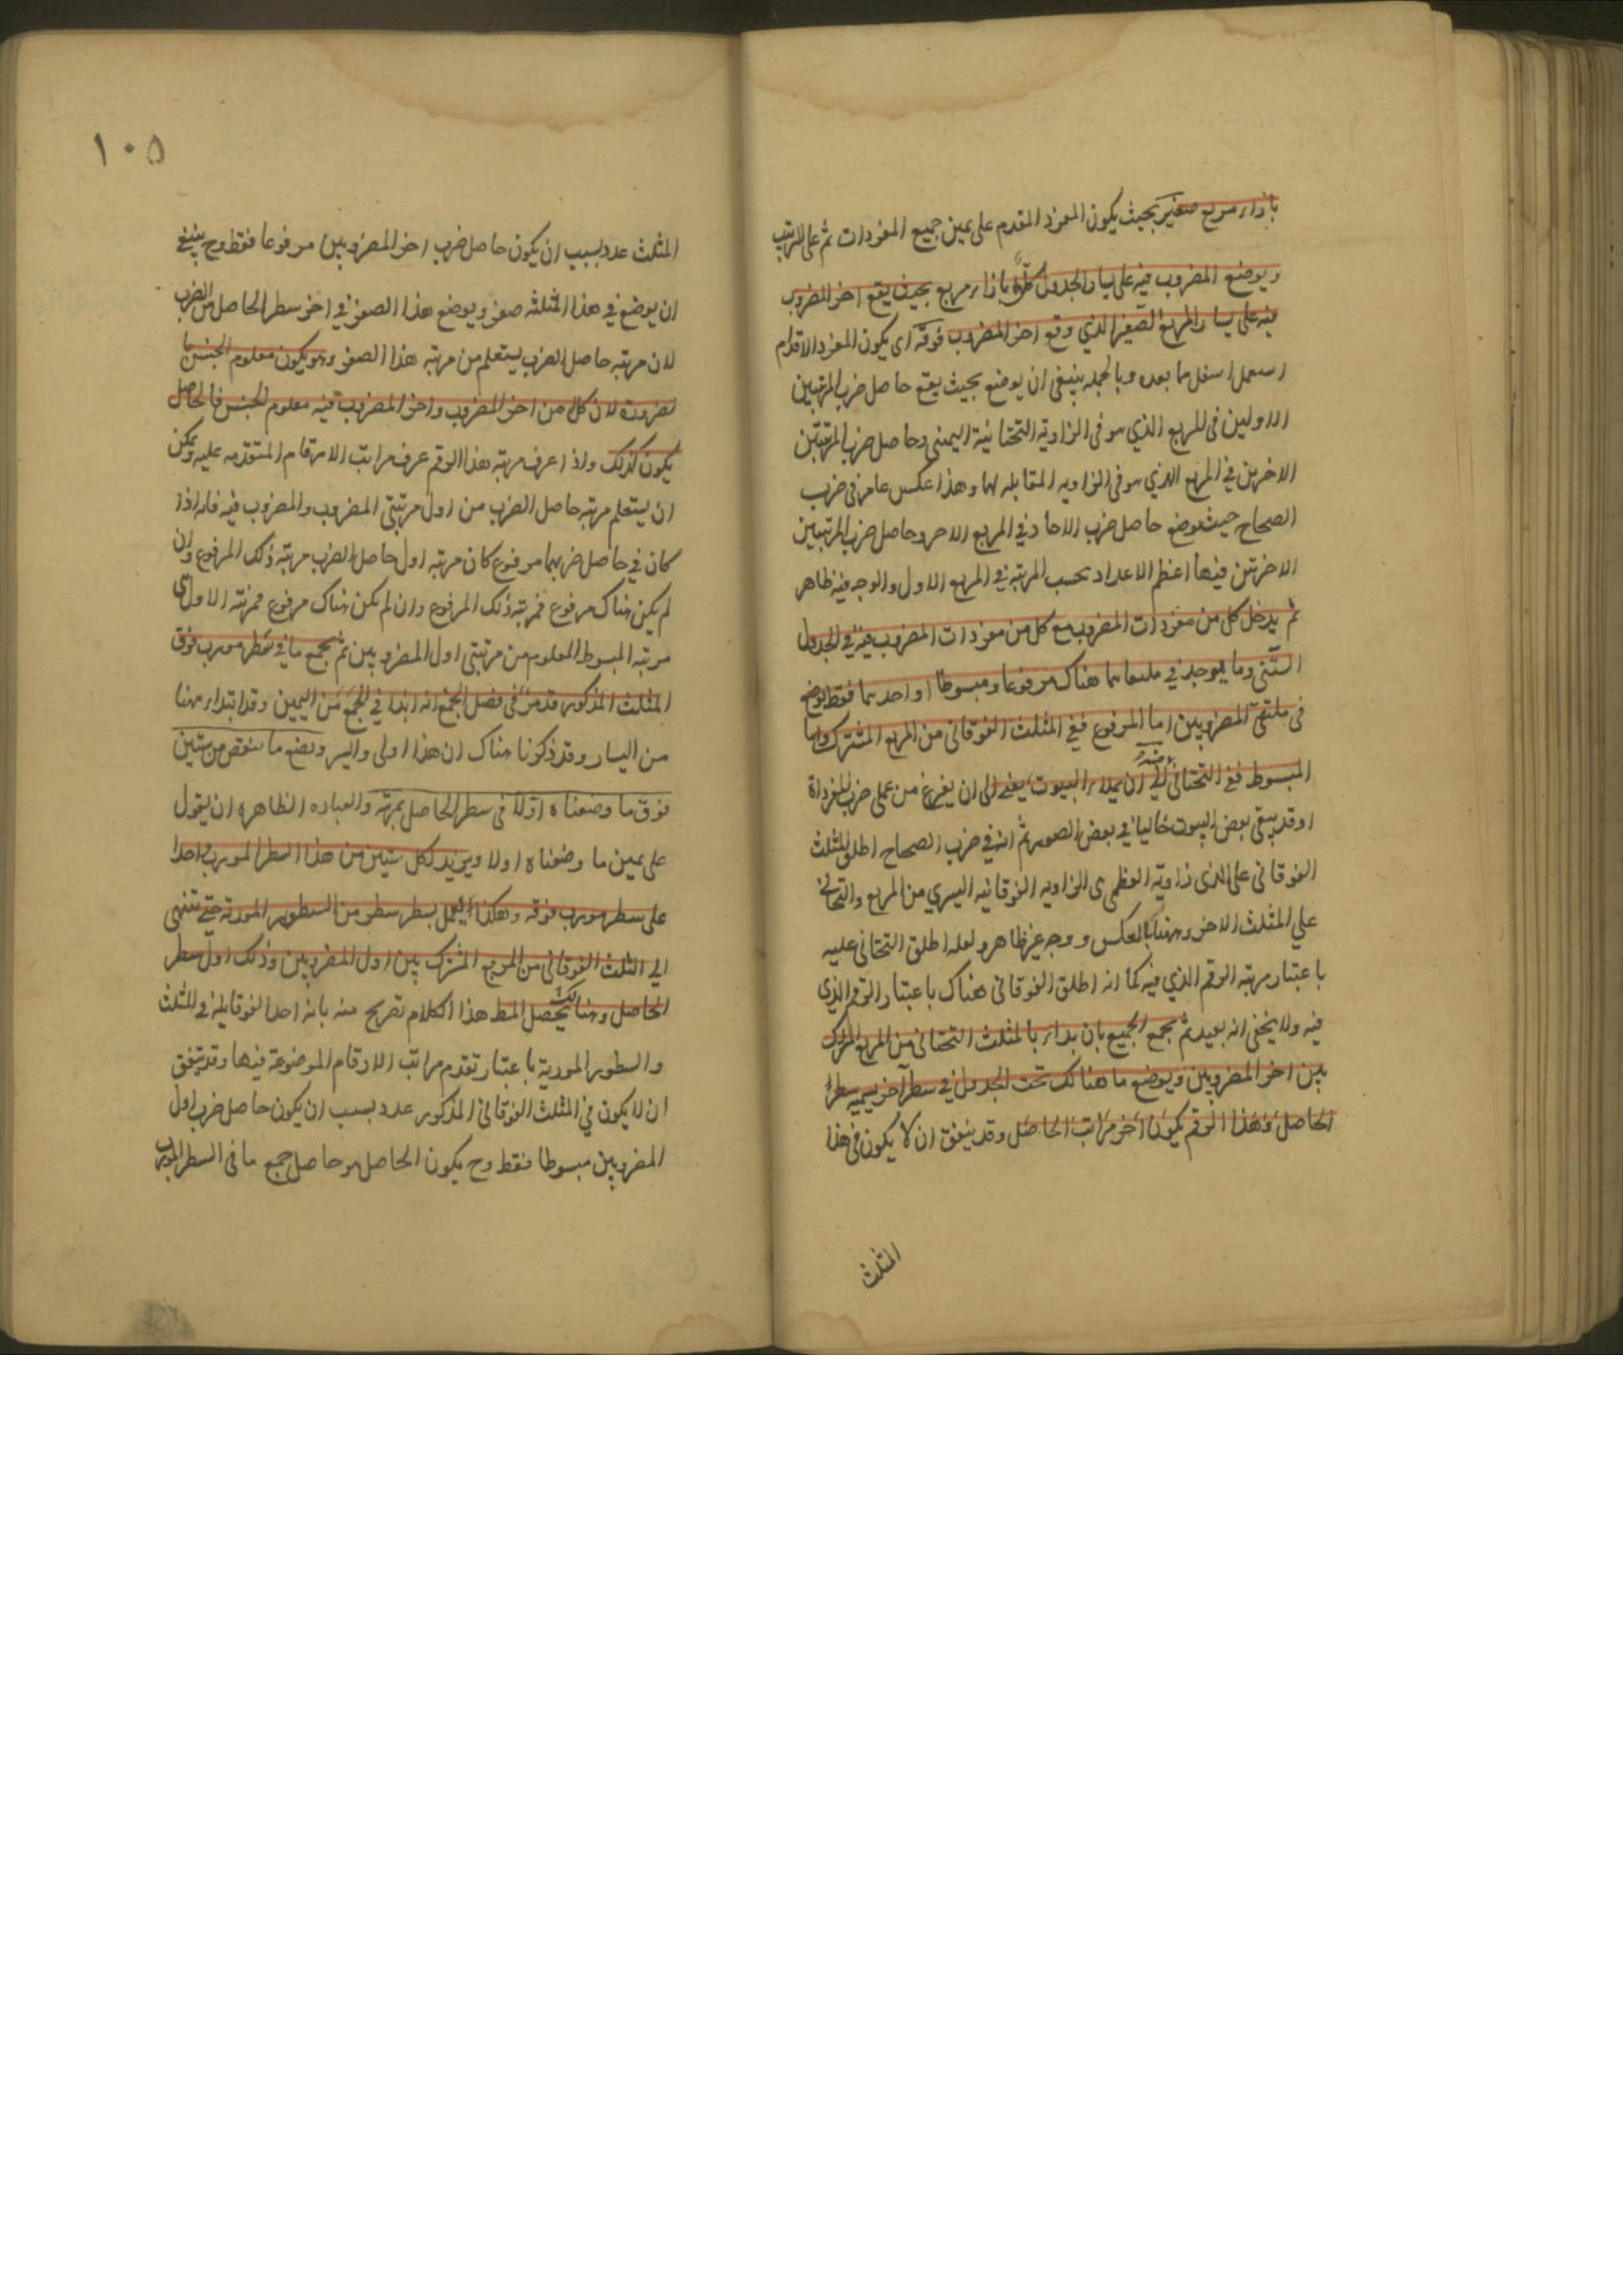 بازاء مربع صغير بحيث يكون المفرد المقدم على يمين جميع المفردات ثم على الترتيب
ويوضع المضروب فيه على يسار الجدول كلّه بازاء مربع بحيث يقع اخر المضروب
فيه على يسار المربع الصغير الذي وقع اخر المضروب فوقه اى يكون المفرد الاقدم
اسفل ما بعده وبالجمله ينبغى ان يوضع بحيث يقع حاصل ضرب المرتبتين
الاولين فى المربع الذي هو فى الزاويه التحتانية اليمنى وحاصل ضرب المرتبتين
الاخرين في المربع الذي هو فى الزاويه المقابله لها وهذا عكس ما مر فى ضرب
الصحاح حيث يوضع حاصل ضرب الاحاد في المربع الاخر وحاصل ضرب المرتبتين
الاخرتين فيها اعظم الاعداد بحسب المرتبه في المربع الاول والوجه فيه ظاهر
ثم يدخل كل من مفردات المضروب مع كل من مفردات المضروب فيه في الجدول
الستينى وما يوجد في ملتقاهما هناك مرفوعا ومبسوطا او احدهما فقط يوضع
فى ملتقى المضروبين اما المرفوع ففي المثلث الفوقانى من المربع المشترك واما
المبسوط ففي التحتانى منه الى ان يملاء البيوت يعنى الى ان يفرغ من عمل ضرب المفرداة
اوقد يبقى بعض البيوت خاليا في بعض الصور ثم انه في ضرب الصحاح اطلق المثلث
الفوقانى على الذى زاويته العظمى هى الزاويه الفوقانيه اليسري من المربع والتحتانى
علي المثلث الاخر وههنا بالعكس ووجه غير ظاهر ولعله اطلق التحتانى عليه
باعتبار مرتبه الرقم الذي فيه كما انه اطلق الفوقانى هناك باعتبار الرقم الذي
فيه ولا يخفى انه بعيد ثم يجمع الجميع بان بداء بالمثلث التحتانى من المربع المشترك
بين اخر المضروبين ويوضع ما هنالك تحت الجدول في سطر آخر يسميه سطر
الحاصل وهذا الرقم يكون اخر مراتب الحاصل وقد يتفق ان لا يكون فى هذا
المثلث
١٠٥
المثلث عدد بسبب ان يكون حاصل ضرب اخر المضروبين مرفوعا فقط وح ينبغي
ان يوضع في هذا المثلثه صفر ويوضع هذا الصفر في اخر سطر الحاصل من الضرب
لان مرتبه حاصل الضرب يستعلم من مرتبه هذا الصفر وهو يكون معلوم الجنس
لضرورة لان كل من اخر المضروب واخر المضروب فيه معلوم الجنس فالحاصل
يكون كذلك واذا عرف مرتبه هذا الرقم عرف مراتب الارقام المتقدمه عليه ويمكن
ان يستعلم مرتبه حاصل الضرب من اول مرتبتى المضروب والمضروب فيه فانه اذا
كان في حاصل ضربهما مرفوع كان مرتبه اول حاصل الضرب مرتبه ذلك المرفوع وان
لم يكن هناك مرفوع فمرتبه ذلك المرفوع وان لم يكن هناك مرفوع فمرتبه الاول هى
مرتبه المبسوط المعلوم من مرتبتى اول المضروبين ثم يجمع ما في سطر مورب فوق
المثلث المذكور قد مر فى فصل الجمع انه ابداء في الجمع من اليمين وقد ابتداء ههنا
من اليسار وقد ذكرنا هناك ان هذا اولى وايسر ويضع ما ينقص من ستين
فوق ما وضعناه اوّلا فى سطر الحاصل بمرتبه والعباده الظاهره ان يقول
على يمين ما وضعناه اولا ويزيد لكل ستين من هذا السطر المورب واحدا
على سطر مورب فوقه وهكذا يعمل بسطر سطر من السطور الموربة حتى تنتهى
الى المثلث الفوقانى من المربع المشترك بين اول المضروبين وذلك اول سطر
الحاصل وهنالك يحصل المط هذا الكلام تصريح منه بانه احد الفوقانيه في المثلث
والسطور الموربة باعتبار تقدم مراتب الارقام الموضوعة فيها وقد يتفق
ان لا يكون في المثلث الفوقانى المذكور عدد بسبب ان يكون حاصل ضرب اول
المضروبين مبسوطا فقط وح يكون الحاصل هو حاصل جمع ما فى السطر المورب